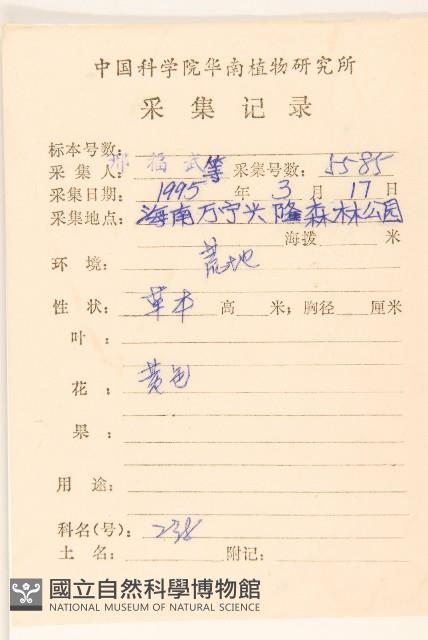 中国科学院华南植物研究所
采集记录
标本号数:
采集人: 邢福武等 采集号数: 5585
采集日期: 1995 年 3 月 17 日
采集地点: 海南万宁兴隆森林公园
海拨 米
环境: 荒地
性状: 草本 高 米; 胸径 厘米
叶:
花: 黄色
果:
用途:
科名(号): 238
土名: 附记:
國立自然科學博物館
NATIONAL MUSEUM OF NATURAL SCIENCE